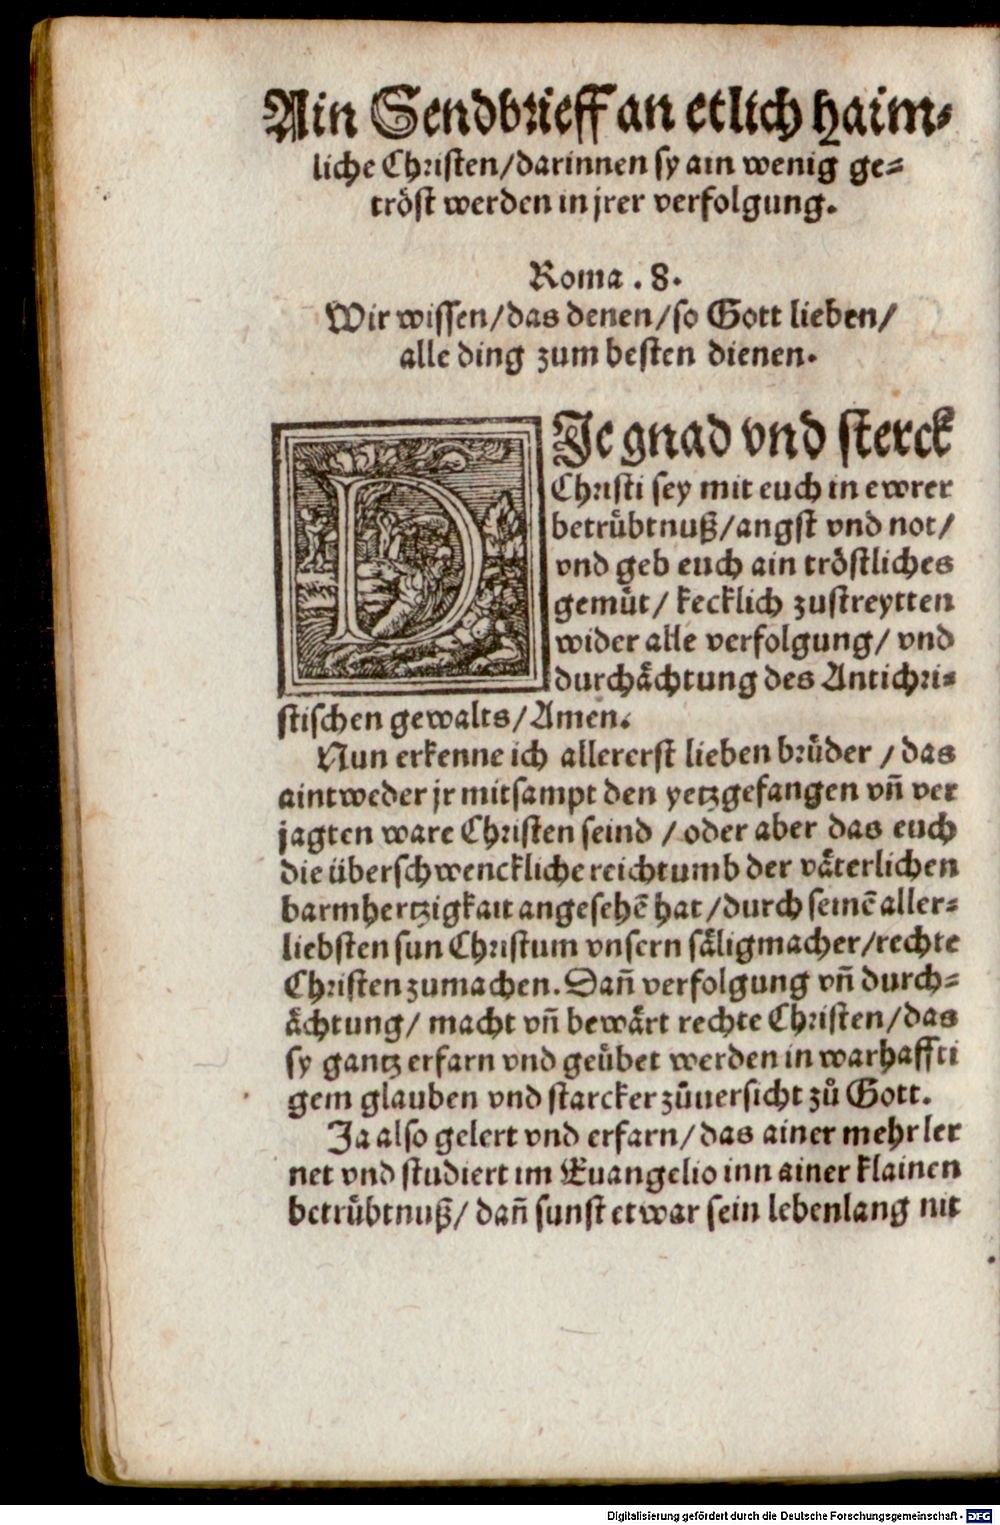 Ain Sendbrieff an etlich haim⸗
liche Christen/darinnen sy ain wenig ge⸗
tröst werden in jrer verfolgung.
Roma . 8.
Wir wissen/das denen/so Gott lieben/
alle ding zum besten dienen.
DIe gnad vnd sterck
Christi sey mit euch in ewrer
betruͤbtnuß/angst vnd not/
vnd geb euch ain tröstliches
gemuͤt/ kecklich zustreytten
wider alle verfolgung/ vnd
durchaͤchtung des Antichri⸗
stischen gewalts/Amen.
Nun erkenne ich allererst lieben bruͤder /das
aintweder jr mitsampt den yetzgefangen vn̄ ver
jagten ware Christen seind /oder aber das euch
die überschwenckliche reichtumb der vaͤterlichen
barmhertzigkait angesehē hat/durch seinē aller⸗
liebsten sun Christum vnsern saͤligmacher/rechte
Christen zumachen. Dan̄ verfolgung vn̄ durch⸗
aͤchtung/ macht vn̄ bewaͤrt rechte Christen/das
sy gantz erfarn vnd geuͤbet werden in warhaffti
gem glauben vnd starcker zuͦuersicht zuͦ Gott.
Ja also gelert vnd erfarn/das ainer mehr ler
net vnd studiert im Euangelio inn ainer klainen
betruͤbtnuß/ dan̄ sunst etwar sein lebenlang nit
Digitalisierung gefördert durch die Deutsche Forschungsgemeinschaft - DFG